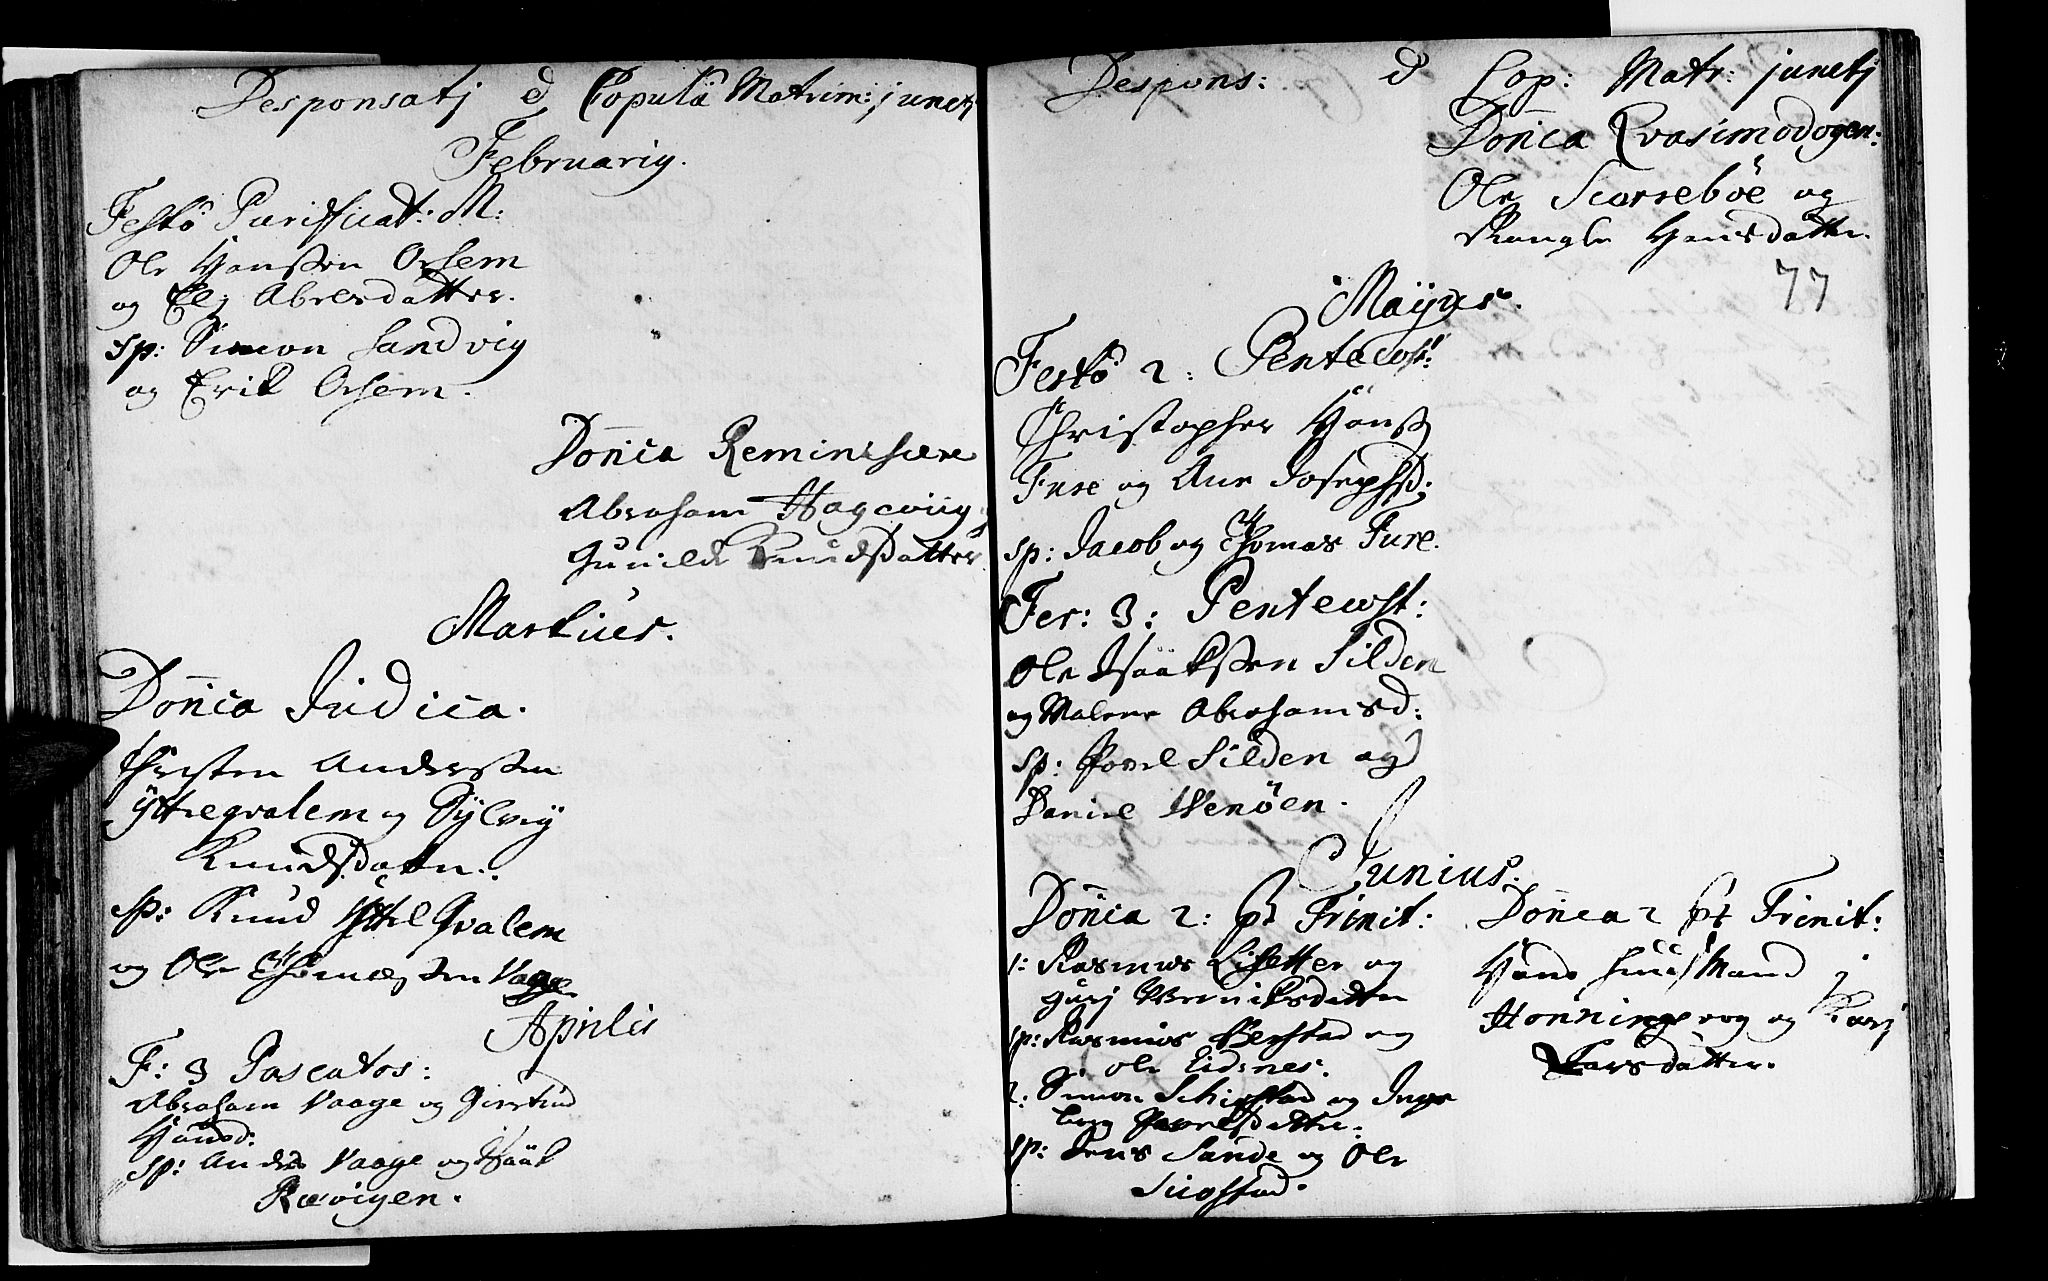 Desponsatj & Copulâ Matrim: junctj
Februarij.
Festô Purificat: M:
Ole Hanssen Orsem
og Elj Abrersdatter.
sp: Simon Sandvig
og Erik Orsem.
Dom̄ca Reminiscere
Abraham Hageviig
Gunild Knudsdatter
Martius.
Dom̄ca Judica.
Christen Andersen
Yttreqvalem og Sylvig
Knudsdatter.
sp: Knud Yttre Qvalem
og Ole Thomæssen Vaage
Aprilis
F: 3 Pascatos:
Abraham Vaage og Giertrud
Hansd:
sp: Anders Vaage og Isaak
Rævigen.
Despons: & Cop: Matr: junctj
Dom̄ca Qvasimodogen:
Ole Scorrebøe og
Rangle Hansdatter.
77
Maijus.
Festô 2: Pentecost:
Christopher Hanss:
Fure og Ane Josephsd:
sp: Jacob og Thomas Fure.
Fer: 3: Pentecost:
Ole Isaakssen Silden
og Malene Abrahamsd:
sp: Povel Silden og
Daniel Venøen.
Junius.
Dom̄ca 2: pt Trinit:
1: Rasmus Lisetter og
Gurj Verniksdatter
sp: Rasmus Berstad og
Ole Eidsnes.
2: Simon Schiestad og Inge
borg Povelsdatter.
sp: Jens Sande og Ole
Schiestad.
Dom̄ca 2 pt Trinit:
Hans Huusmand i
Honningsvog og Karj
Larsdatter.